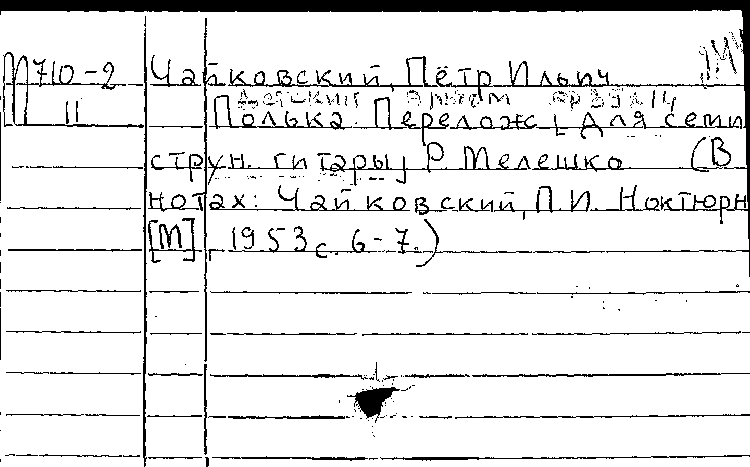 П710-2 Чайковский, Пётр Ильич
11 Детский альбом ор 39 № 14
Полька. Переложс [для семи
струн. гитары] Р. Мелешко (В
нотах: Чайковский, П.И. Ноктюрн
[М], 1953 с. 6-7.)